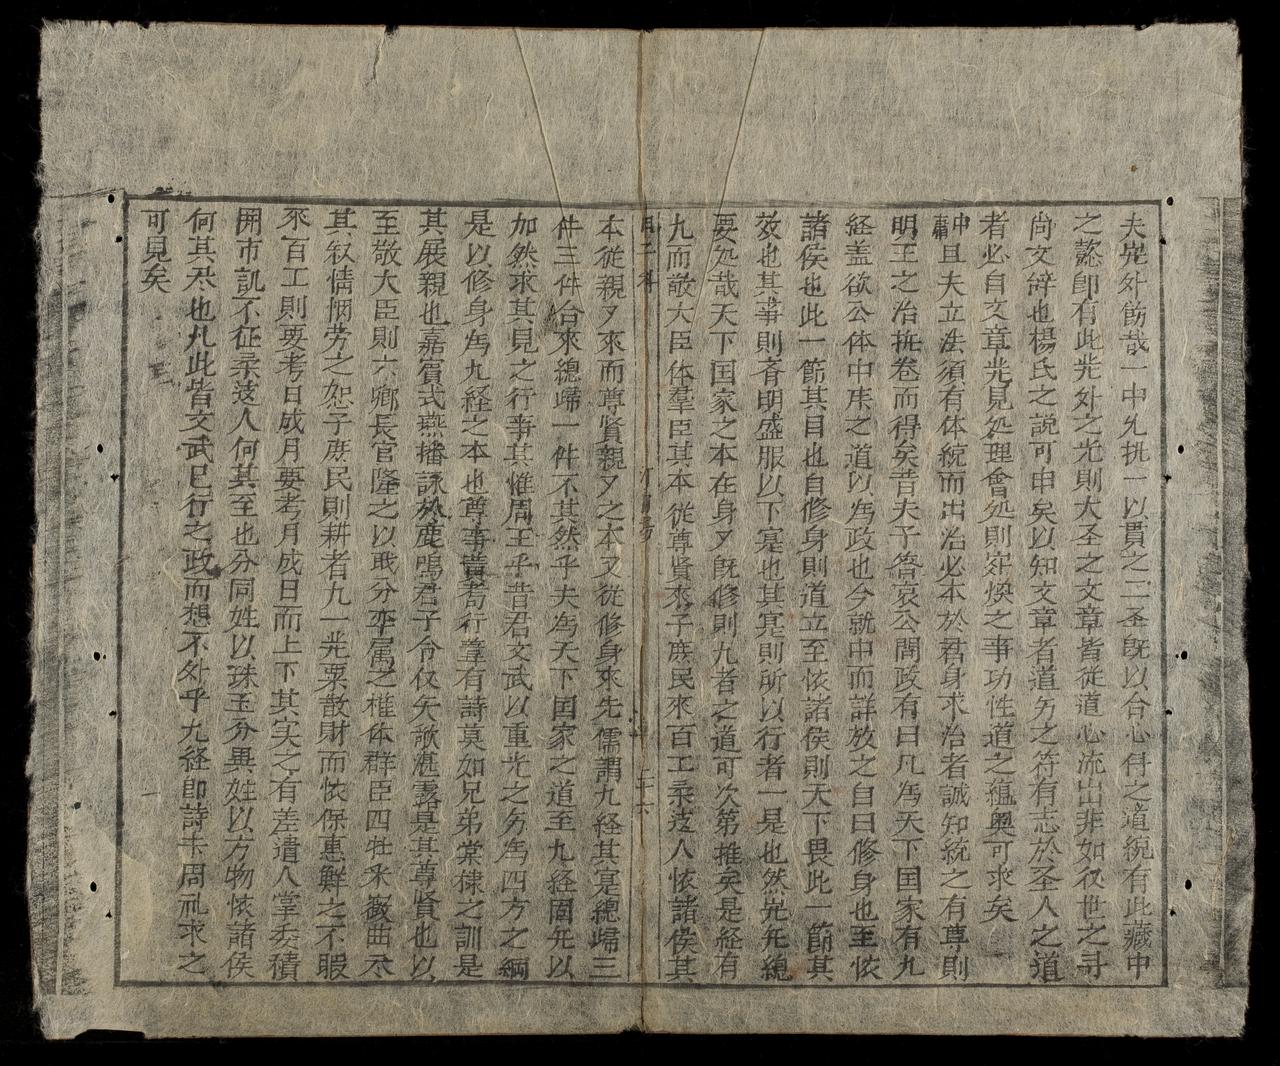 夫堯外飾哉一中允执一以貫之二圣既以合心得之道統有此藏中
之懿即有此光外之光則大圣之文章皆從道心流出非如後世之寻
尚文辞也楊氏之說可申矣以知文章者道
之符有志於圣人之道
者必自文章光見处理會处則
煥之事功性道之蕴奥可求矣
中庸且夫立法須有体統而出治必本於君身求治者誠知統之有尊則
明王之治执卷而得矣昔夫子答哀公問政有曰凡為天下国家有九
経盖欲公体中庸之道以為政也今就中而詳放之自曰修身也至怀
諸侯也此一節其目也自修身則道立至怀諸侯則天下畏此一節其
效也其事則斉明盛服以下寔也其寔則所以行者一是也然
總
要处哉天下国家之本在身又既修則九者之道可次第推矣是経有
九而敬大臣体羣臣其本従尊賢來子庶民來百工柔遠人怀諸侯其
本従親又來而尊賢親又之本又従修身來先儒謂九経其寔總歸三
件三件合來總歸一件不其然乎夫為天下国家之道至九経固
以
加然求其見之行事其惟周王乎昔君文武以重光之
為四方之綱
是以修身為九経之本也尊事黄耇行葦有詩莫如兄弟棠棣之訓是
其展親也嘉賓式燕播詠於鹿鳴君子令仪矢歌湛露是其尊賢也以
至敬大臣則六卿長官隆之以
分率属之権体群臣四牡采薇曲尽
其叙情悯劳之恕子庶民則耕者九一
粟散財而怀保惠鮮之不暇
來百工則要考日成月要考月成日而上下其实之有差遺人掌委積
開市訊不征柔遠人何其至也分同姓以珠玉分異姓以方物怀諸侯
何其尽也凡此皆文武已行之政而想不外乎九経即詩
周礼求之
可見矣